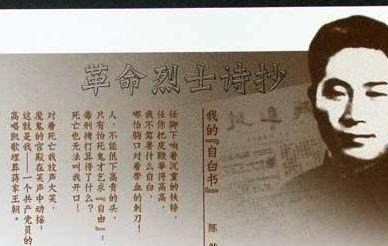 革命烈士诗抄
我的『自白书』
陈然
任脚下响着沉重的铁镣，
任你把皮鞭举得高高，
我不需要什么自白，
哪怕胸口对着带血的刺刀！
人，不能低下高贵的头，
只有怕死鬼才乞求『自由』；
毒刑拷打算得了什么？
死亡也无法叫我开口！
对着死亡我放声大笑，
魔鬼的宫殿在笑声中动摇；
这就是我——一个共产党员的
高唱凯歌埋葬蒋家王朝。